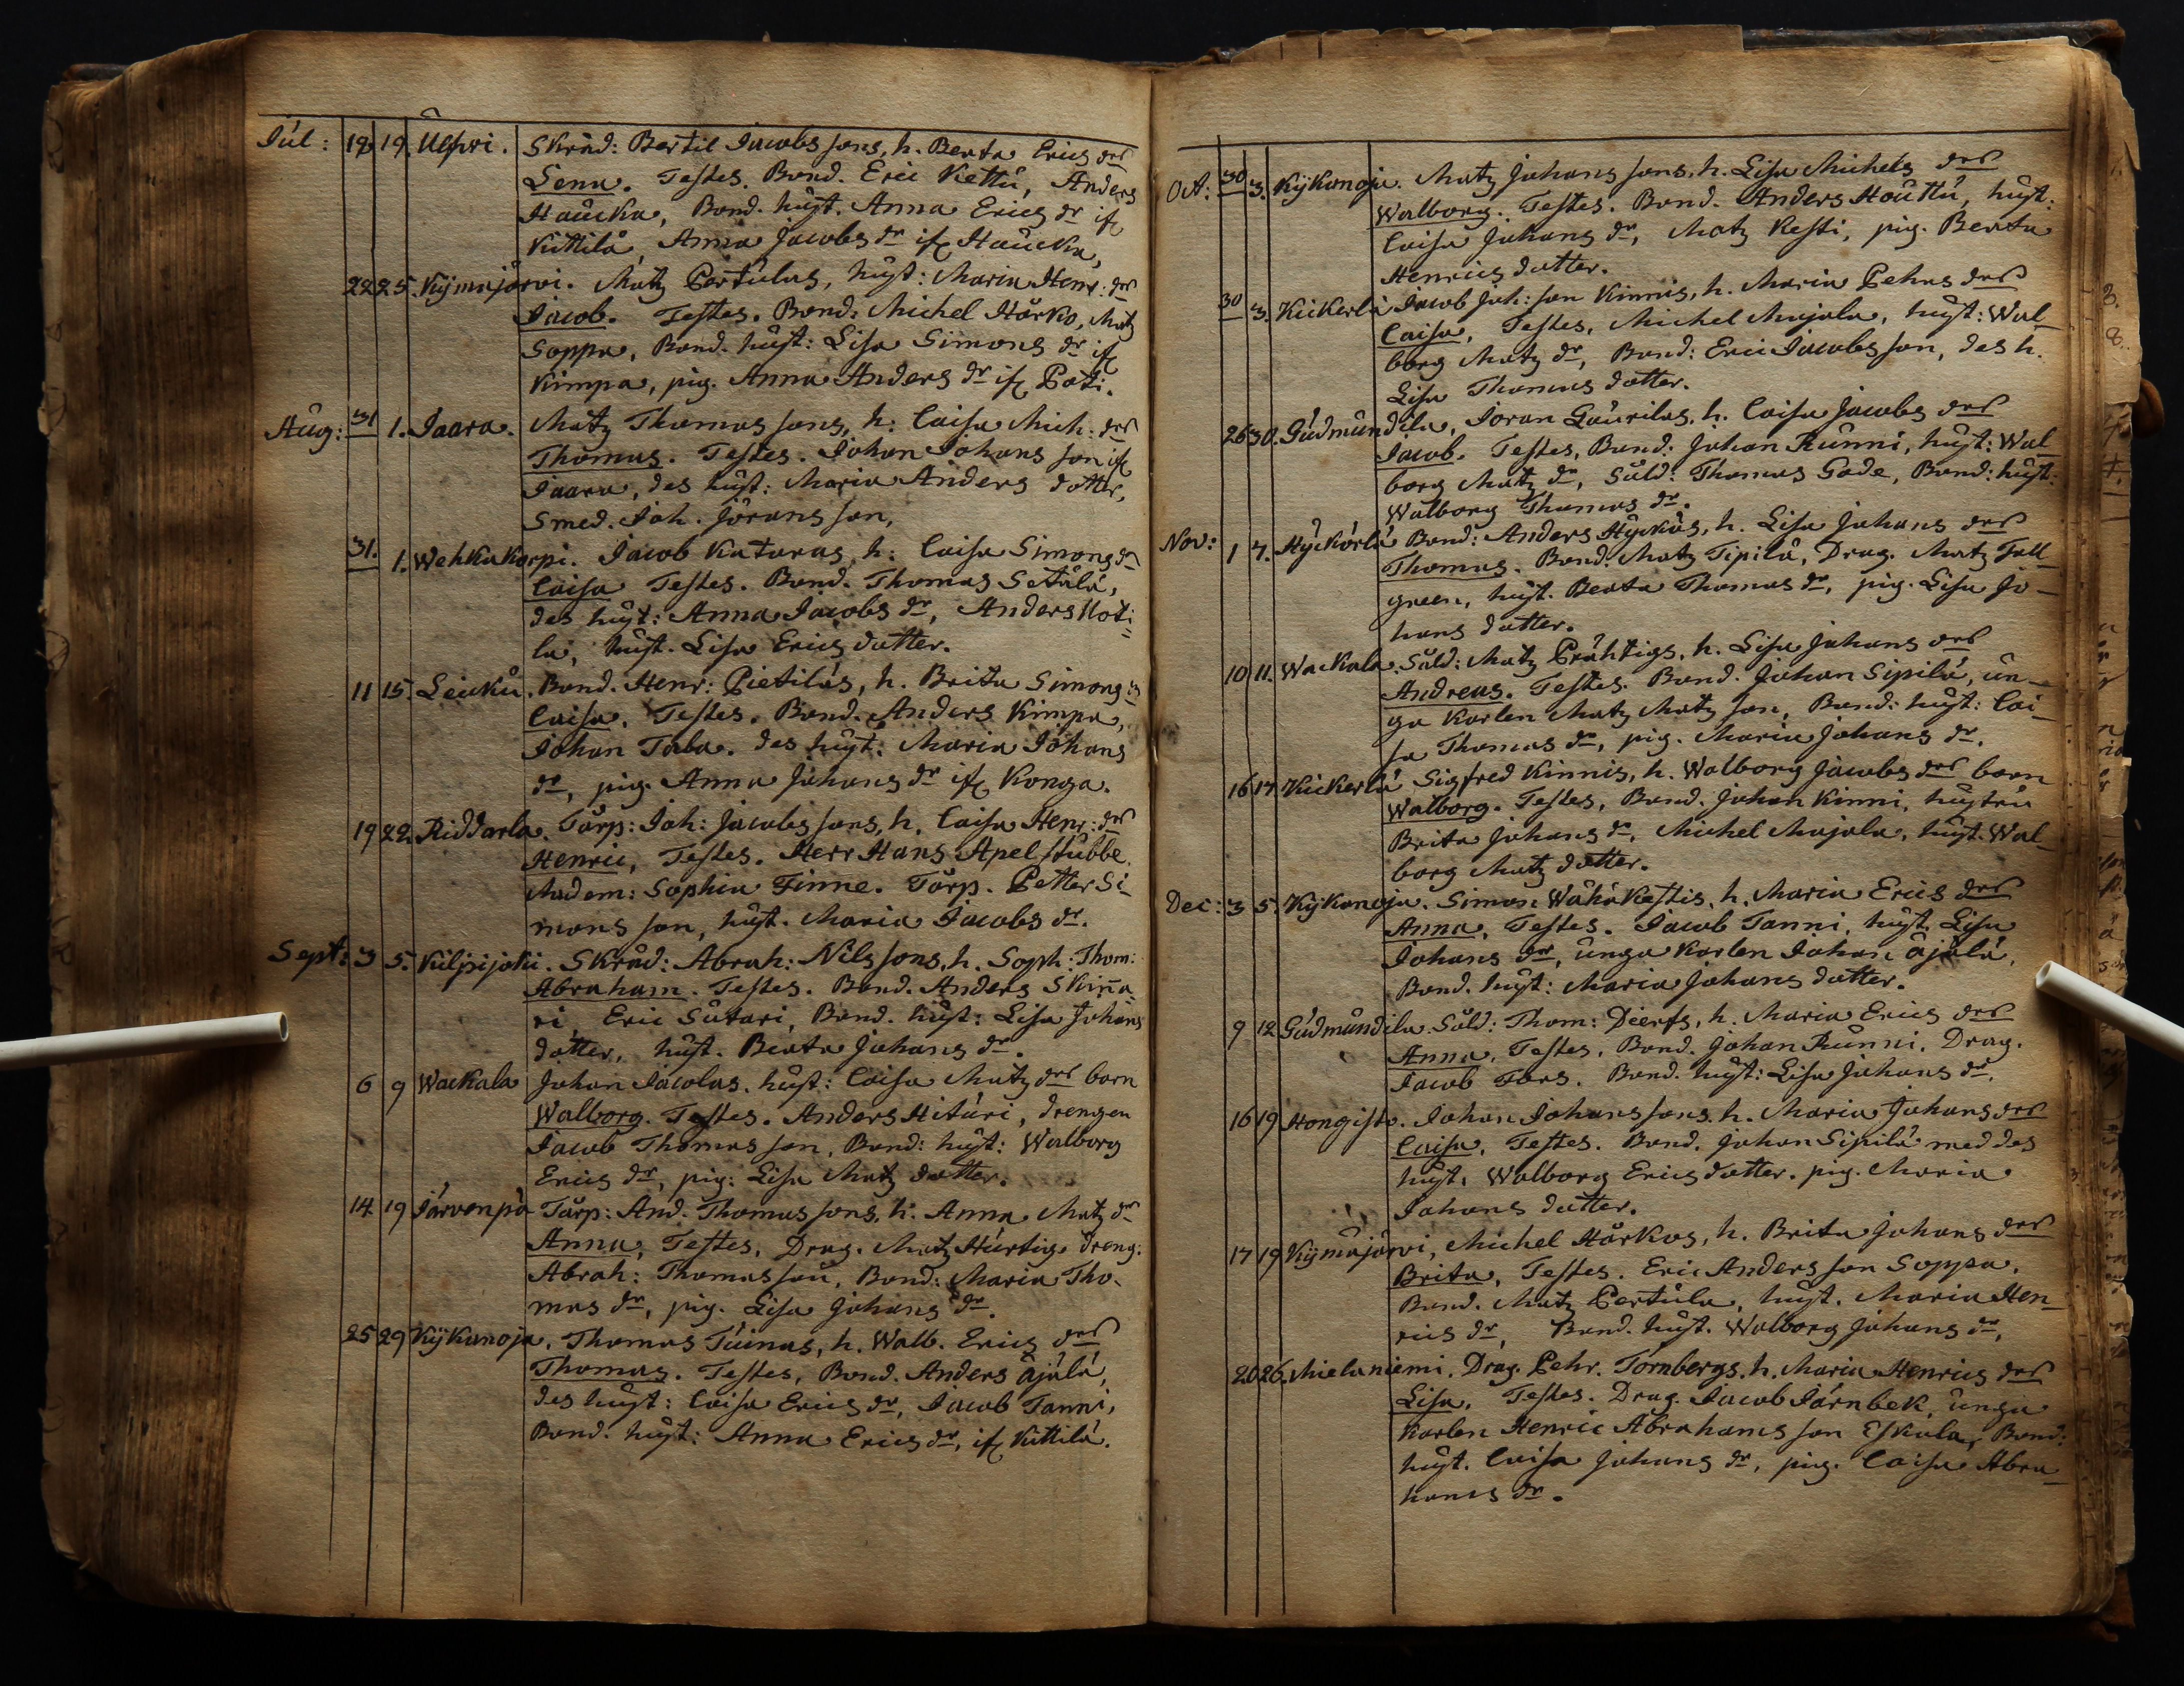 Jul: 18 19. Ulfwi. Skräd: Bertil Jacobs sons, h. Beata Erics drs
Lena. Testes. Bond. Eric Kettu, Anders
Haucka, Bond. hust. Anna Erics dr if
Kittilä, Anna Jacobs dr if Haucka,
22 25. Kijmajärwi. Matz Pertulas, hust: Maria Henr: drs
Jacob. Testes. Bond. Michel Harko, Matz
Soppa, Bond. hust: Lisa Simons dr if
Kimpa, pig. Anna Anders dr if Poti.
Aug: 31 1. Jaara. Matz Thomas sons, h. Caisa Mich: drs
Thomas. Testes. Johan Johans son if
Jaara, des hust: Maria Anders dotter,
Smed. Joh. Jörans son,
31. 1. Wehkakorpi. Jacob Kataras, h: Caisa Simons dr
Caisa Testes. Bond. Thomas Setälä,
des hust: Anna Jacobs dr, Anders Noti=
la, hust. Lisa Erics dotter.
11 15. Leicku. Bond. Henr: Pietiläs, h. Brita Simons dr
Caisa. Testes. Bond. Anders Kimpa,
Johan Tala. des hust: Maria Johans
dr, pig. Anna Johans dr if Konga.
19 22. Riddarla. Torp: Joh: Jacobs sons, h. Caisa Henr: drs
Henric, Testes. Herr Hans Apelstubbe.
Madem: Sophia Finne. Torp. Petter Si
mons son, hust. Maria Jacobs dr.
Sept: 3 5. Kilpijoki. Skräd: Abrah: Nils sons, h. Soph: Thom:
Abraham. Testes. Bond. Anders Skinna
ri, Eric Sutari, Bond. hust: Lisa Johans
dotter, hust. Beata Johans dr.
6 9 Wackala Johan Jacolas. hust: Caisa Matz drs barn
Walborg. Testes. Anders Hituri, drengen
Jacob Thomas son, Bond: hust: Walborg
Erics dr, pig: Lisa Matz dotter.
14 19 Järwenpä Torp: And. Thomas sons, h. Anna Matz dr
Anna, Testes, Drag. Matz Hurtig. dreng:
Abrah: Thomas son, Bond: Maria Tho-
mas dr, pig. Lisa Johans dr.
25 29 Kijkanoja. Thomas Tuinas, h. Walb. Erics drs
Thomas. Testes, Bond. Anders Äjälä,
des hust: Caisa Erics dr, Jacob Tanni,
Bond. hust: Anna Erics dr, if Kittilä.
Oct: 30 3. Kijkanoja. Matz Johans sons, h. Lisa Michels drs
Walborg. Testes. Bond. Anders Houttu, hust:
Caisa Johans dr, Matz Kesti, pig. Beata
Henrics dotter.
30 3. Kickerlä Jacob Joh: son Kinnis, h. Maria Pehrs drs
Caisa, Testes, Michel Majala, hust: Wal-
borg Matz dr, Bond: Eric Jacobs son, des h.
Lisa Thomas dotter.
26 30. Gudmundila, Joran Gaurilas, h. Caisa Jacobs drs
Jacob. Testes, Bond: Johan Runni, hust: Wal
borg Matz dr, Sold: Thomas Gode, Bond: hust:
Walborg Thomas dr.
Nov: 1 7. Hyckörlä Bond: Anders Hyckäs, h. Lisa Johans drs
Thomas. Bond: Matz Tipilä, Drag. Matz Tall
green, hust. Beata Thomas dr, pig. Lisa Jo-
hans dotter.
10 11. Wackala. Sold: Matz Prähtigs, h. Lisa Johans drs
Andreas. Testes. Bond. Johan Sipilä, un-
ga Karlen Matz Matz son, Bond: hust: Cai-
sa Thomas dr, pig. Maria Johans dr.
16 17 Kickerlä Sigfred Kinnis, h. Walborg Jacobs drs barn
Walborg. Testes, Bond. Johan Kinni, hustru
Brita Johans dr, Michel Majala, hust. Wal-
borg Matz dotter.
Dec: 3 5. Kijkanoja. Simon Wähäkestis, h. Maria Erics drs
Anna, Testes. Jacob Tanni, hust. Lisa
Johans dr, unga Karlen Johan Äjälä,
Bond. hust: Maria Johans dotter.
9 12 Gudmundila. Sold: Thom: Dierfs, h. Maria Erics drs
Anna, Testes, Bond. Johan Runni. Drag.
Jacob Fors. Bond. hust: Lisa Johans dr.
16 19 Hongisto. Johan Johans sons, h. Maria Johans drs
Caisa. Testes. Bond. Johan Sipilä med des
hust. Walborg Erics dotter. pig. Maria
Johans dotter.
17 19 Kijmajärwi, Michel Harkos, h. Brita Johans drs
Brita, Testes. Eric Anders son Soppa,
Bond. Matz Pertula, hust. Maria Hen-
rics dr, Bond. hust. Walborg Johans dr,
20 26. Mielaniemi. Drag. Pehr. Tornbergs, h. Maria Henrics drs
Lisa, Testes. Drag. Jacob Järnbek, unga
Karlen Henric Abrahams son Eskola, Bond:
hust. Caisa Johans dr, pig. Caisa Abra-
hams dr.